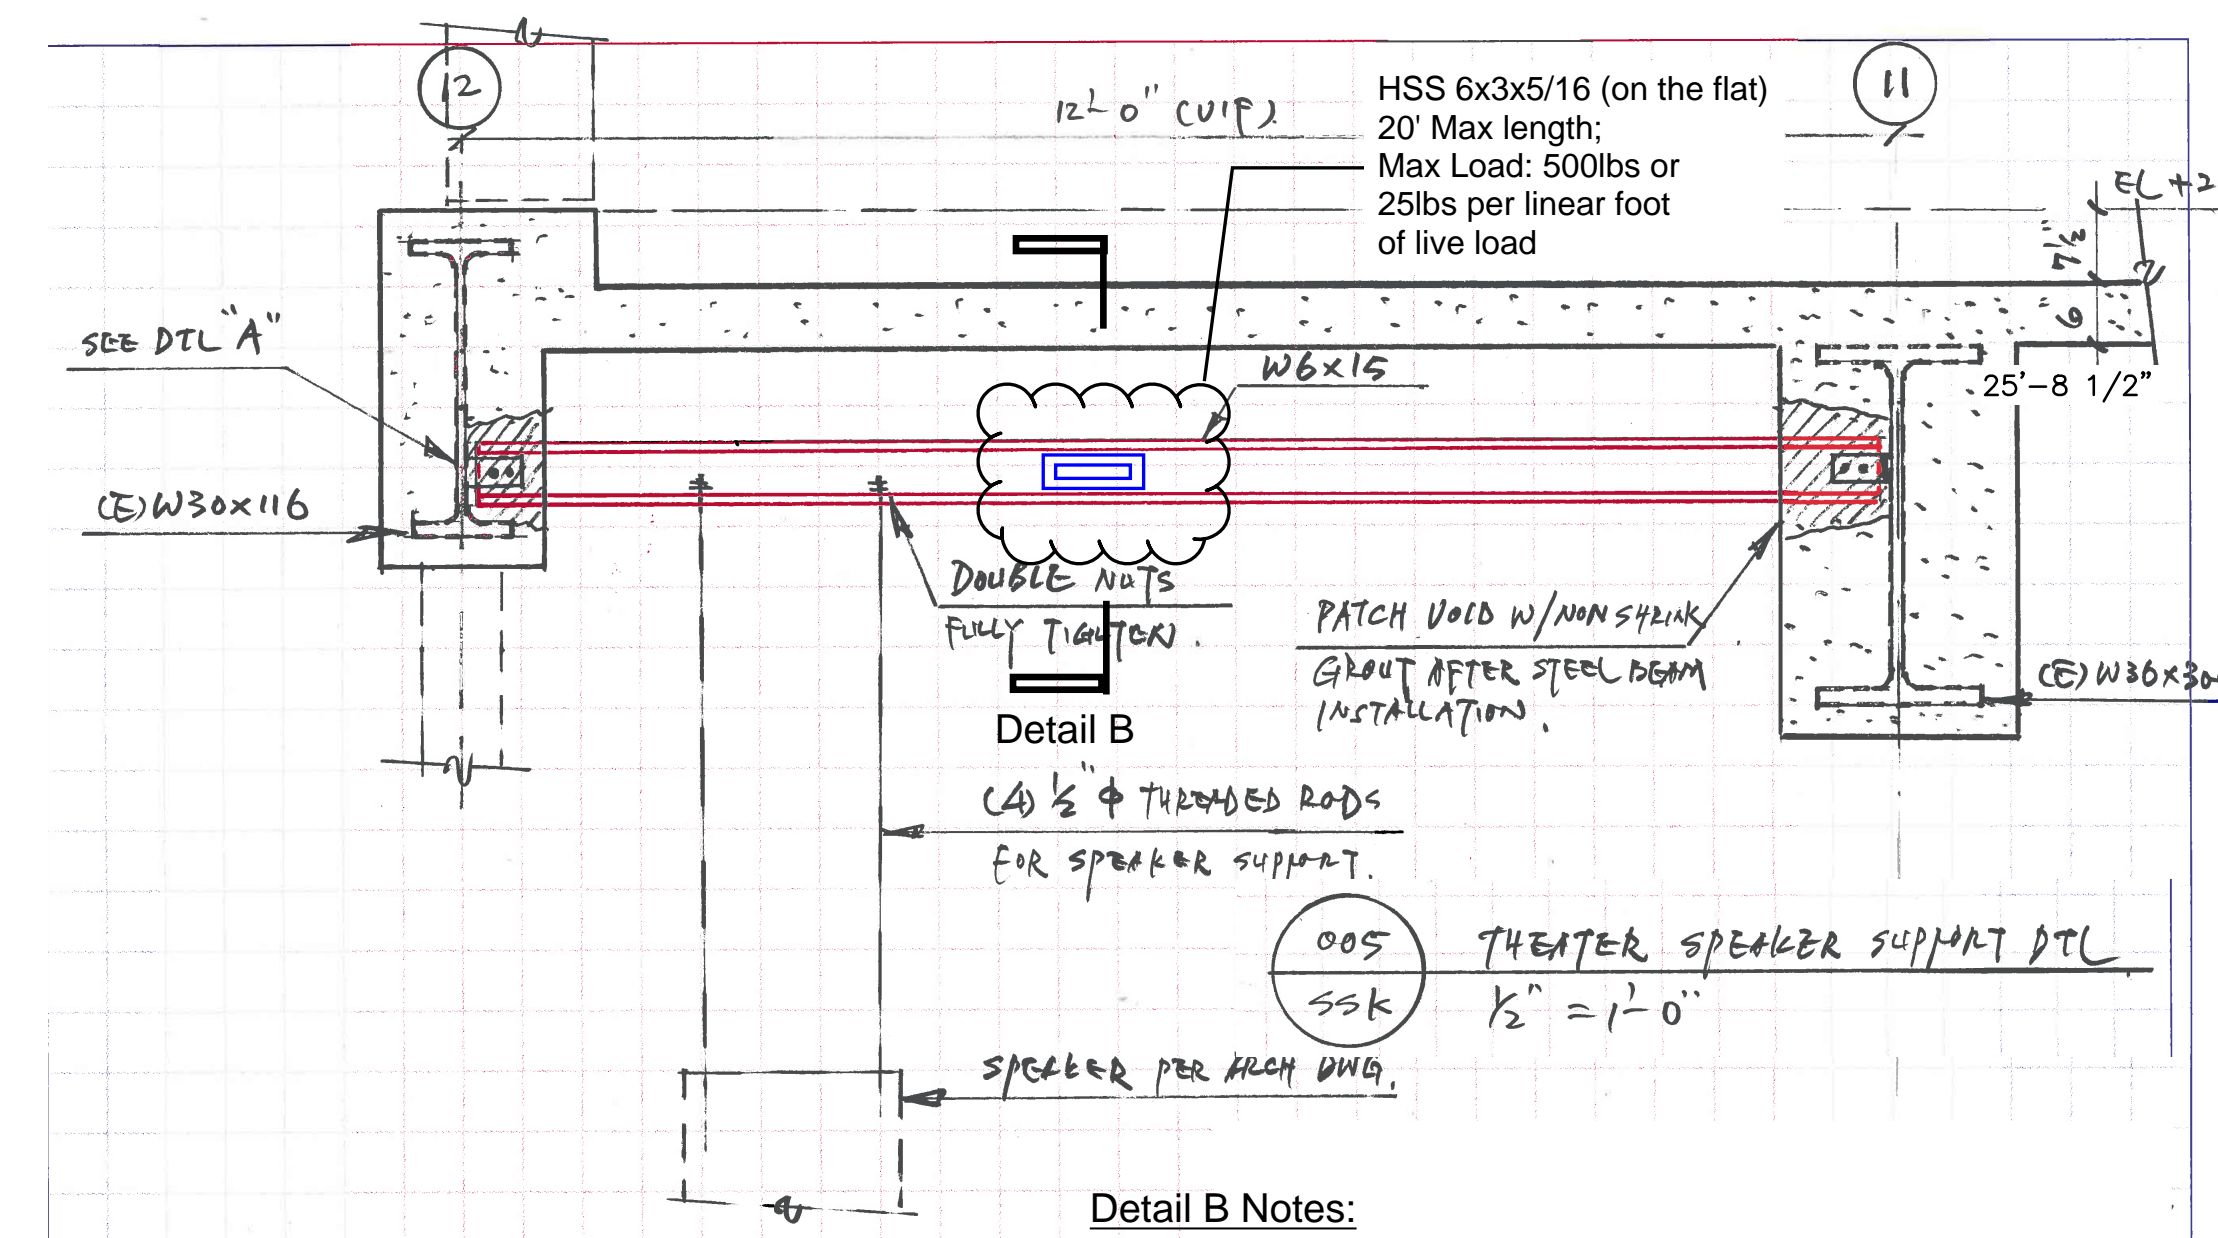 12
12'-0" (VIF).
HSS 6x3x5/16 (on the flat)
20' Max length;
Max Load: 500lbs or
25lbs per linear foot
of live load
11
EL +2
7 1/2"
6"
25'-8 1/2"
SEE DTL "A"
W6x15
(E) W30x116
DOUBLE NUTS
FULLY TIGHTEN.
PATCH VOID W/NON SHRINK
GROUT AFTER STEEL BEAM
INSTALLATION.
(E) W36x30
Detail B
(4) 1/2" Φ THREADED RODS
FOR SPEAKER SUPPORT.
005
SSK
THEATER SPEAKER SUPPORT DTL
1/2" = 1'-0"
SPEAKER PER ARCH DWG.
Detail B Notes: